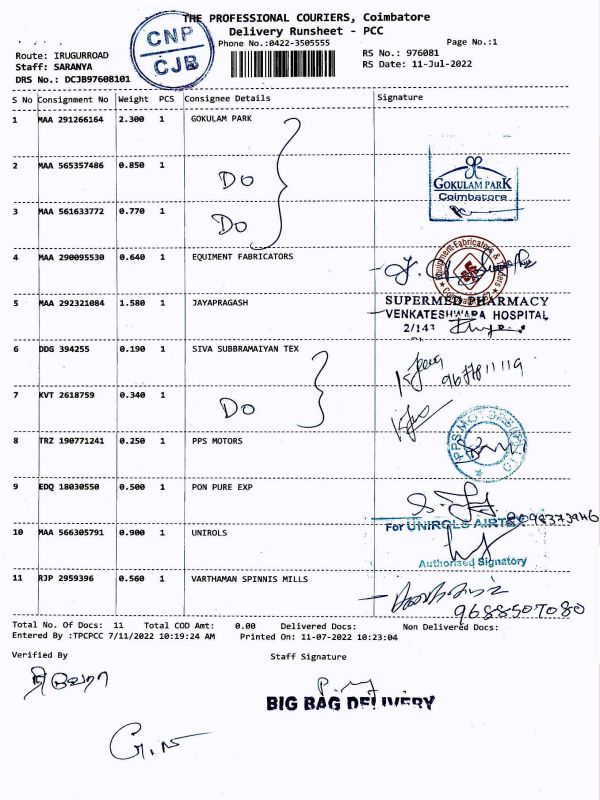 THE PROFESSIONAL COURIERS, Coimbatore
Delivery Runsheet - PCC
Phone No.:0422-3505555
Page No.:1
CNP
CJB
Route: IRUGURROAD
Staff: SARANYA
DRS No.: DCJB97608101
RS No.: 976081
RS Date: 11-Jul-2022
S No Consignment No Weight PCS Consignee Details Signature
1 MAA 291266164 2.300 1 GOKULAM PARK
2 MAA 565357486 0.850 1 Do
GOKULAM PARK
Coimbatore
3 MAA 561633772 0.770 1 Do
4 MAA 290095530 0.640 1 EQUIMENT FABRICATORS
Equipment Fabricators & Traders
5 MAA 292321084 1.580 1 JAYAPRAGASH
SUPERMED PHARMACY
VENKATESHWARA HOSPITAL
2/143
6 DDG 394255 0.190 1 SIVA SUBBRAMAIYAN TEX
9677811119
7 KVT 2618759 0.340 1 Do
8 TRZ 190771241 0.250 1 PPS MOTORS
9 EDQ 18030550 0.500 1 PON PURE EXP
8098373946
10 MAA 566305791 0.900 1 UNIROLS
For UNIROLS AIRTEX
Authorised Signatory
11 RJP 2959396 0.560 1 VARTHAMAN SPINNIS MILLS
9688507080
Total No. Of Docs: 11 Total COD Amt: 0.00 Delivered Docs: Non Delivered Docs:
Entered By :TPCPCC 7/11/2022 10:19:24 AM Printed On: 11-07-2022 10:23:04
Verified By Staff Signature
BIG BAG DELIVERY